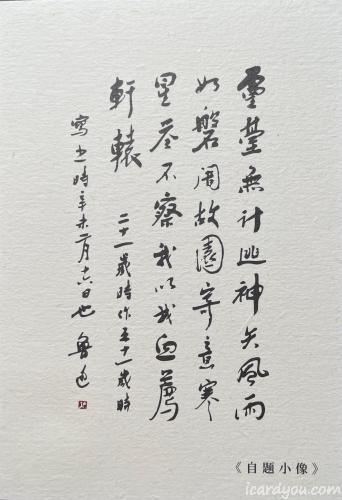 靈臺無計逃神矢風雨
如磐闇故園寄意寒
星荃不察我以我血薦
軒轅
二十一歲時作五十一歲時
寫之時辛未二月十六日也 魯迅
《自题小像》
icardyou.com